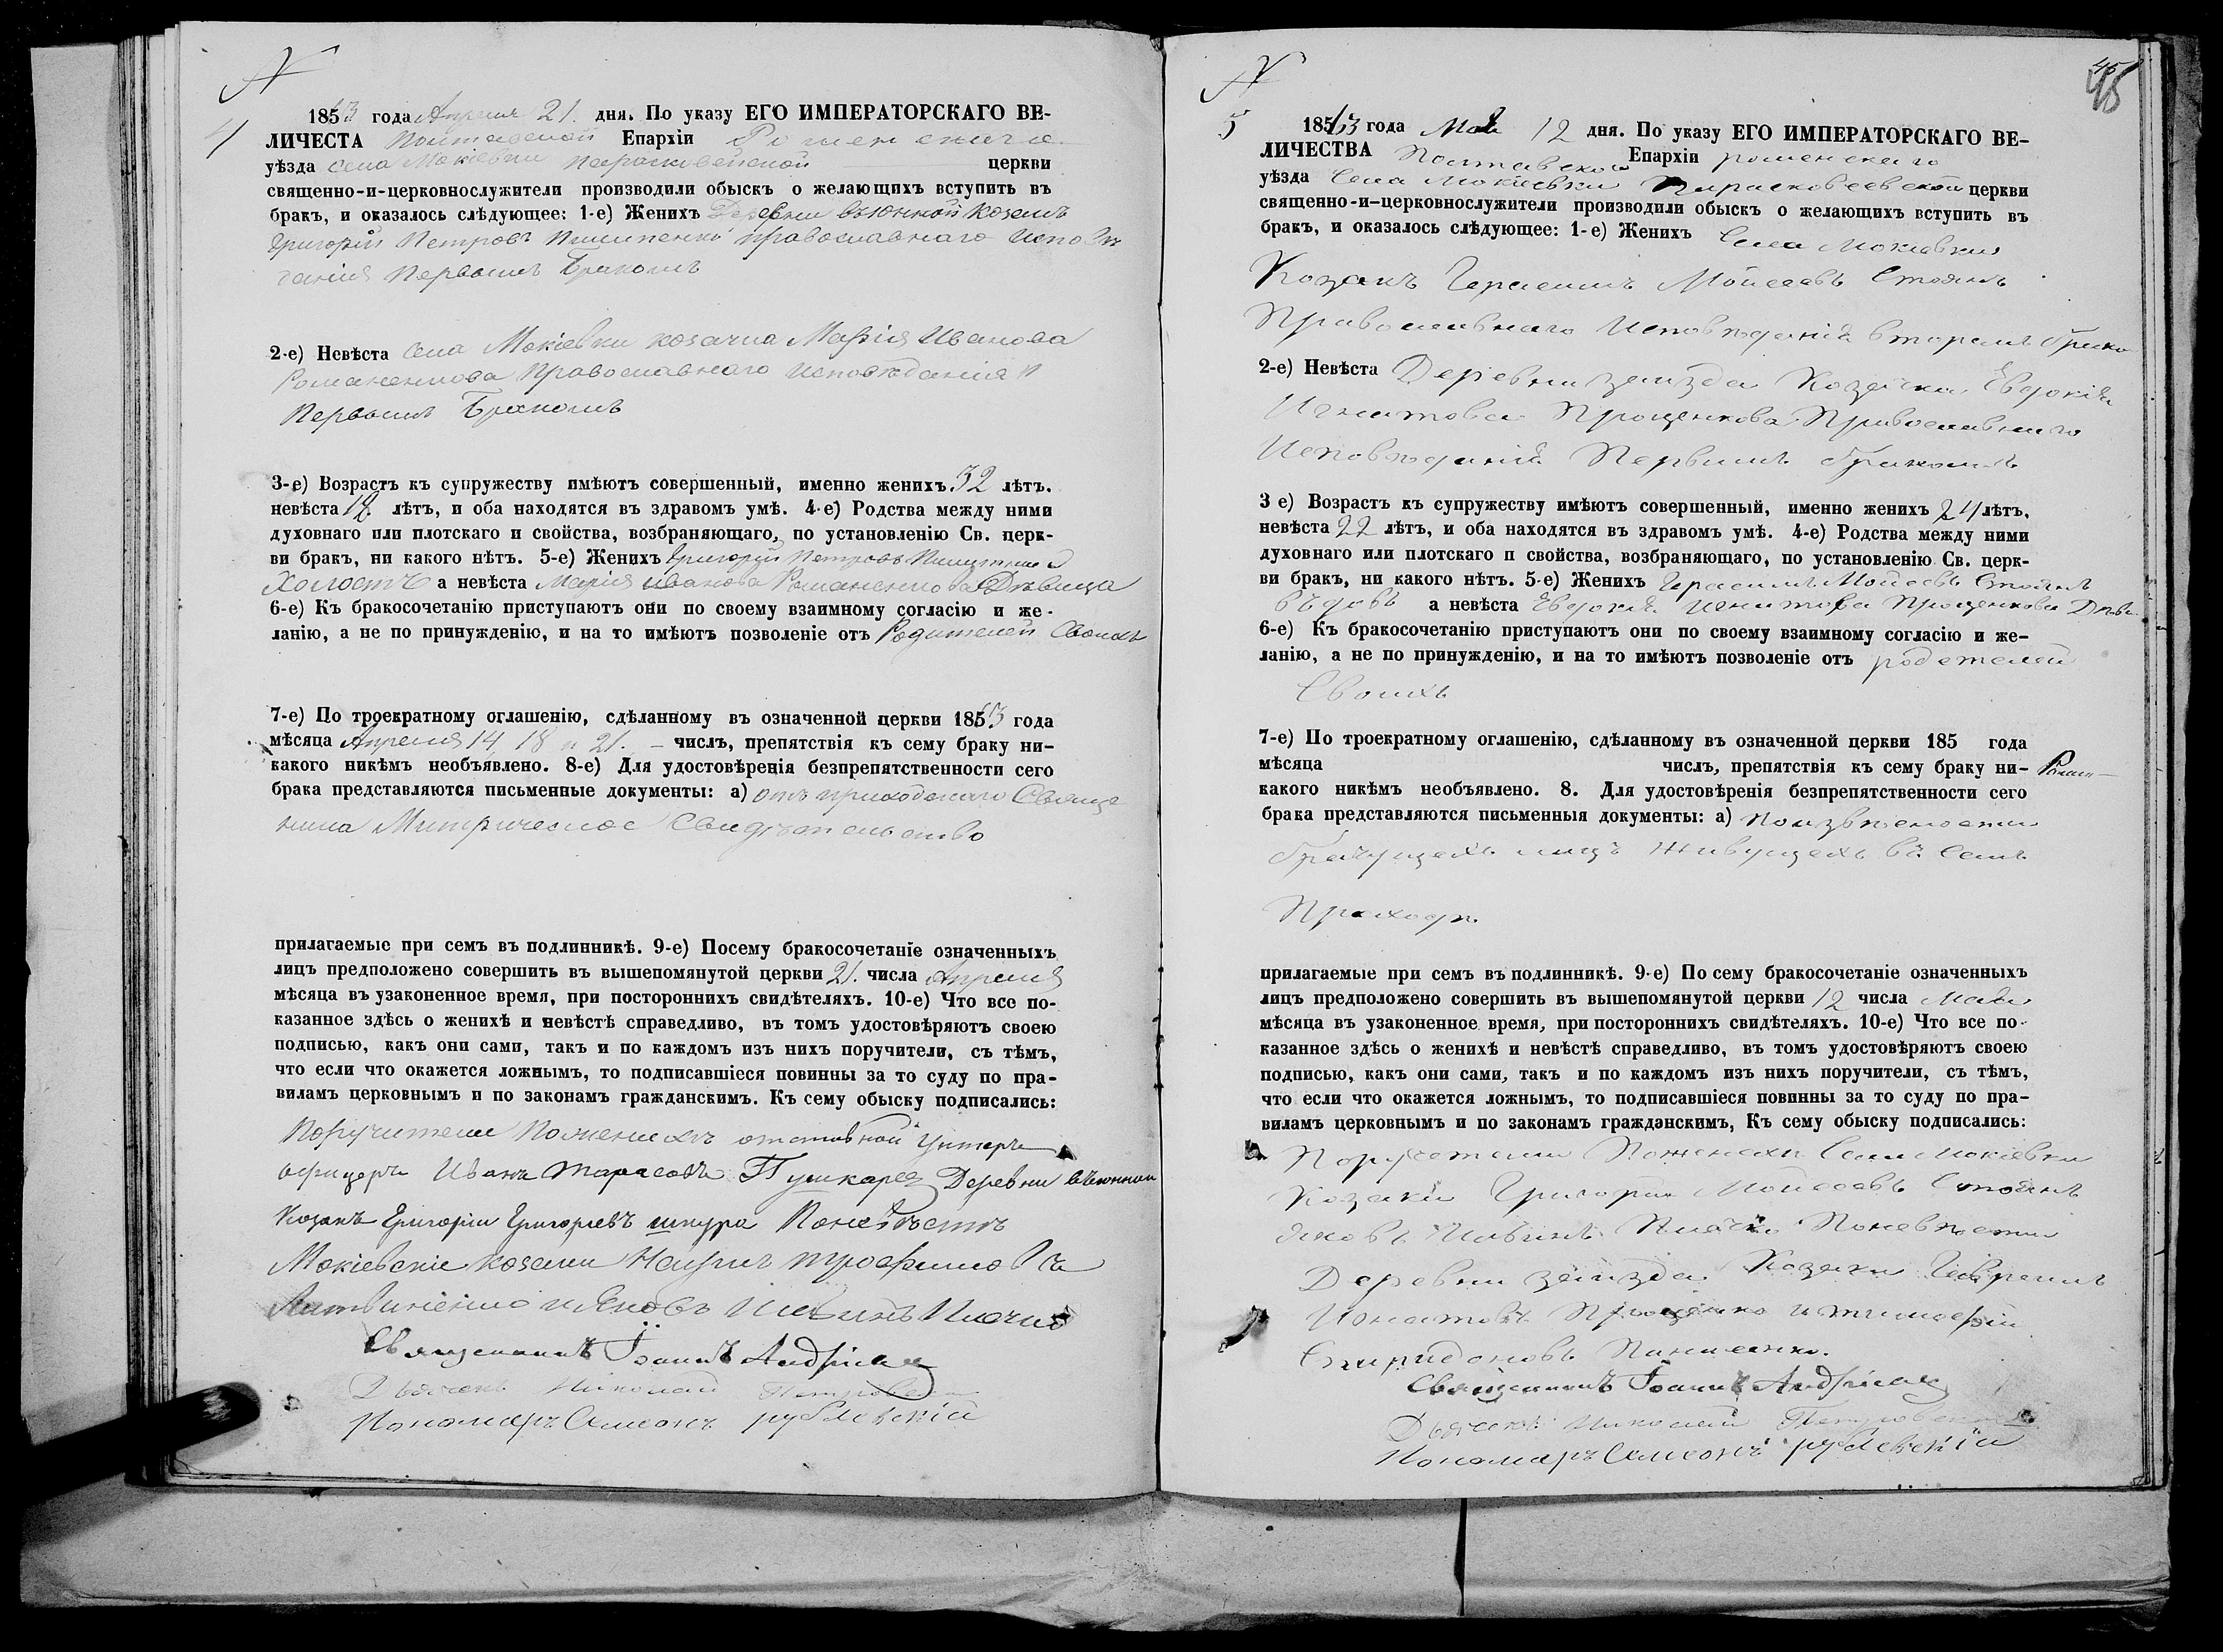 N
4
1863 года Апреля 21. дня. По указу ЕГО ИМПЕРАТОРСКАГО ВЕ-
ЛИЧЕСТА Полтавской Епархіи Роменскаго
уѣзда села Мокіевки Парасковейской церкви
священно-и-церковнослужители производили обыскъ о желающихъ вступить въ
бракъ, и оказалось слѣдующее: 1-е) Женихъ Деревни Вьюнной Козакъ
Григорій Петровъ православнаго Исповѣ
данія Первымъ Бракомъ
2-е) Невѣста Села Мокіевки козачка Марія Иванова
Романенкова Православнаго Исповѣданія
Первымъ Бракомъ
3-е) Возрастъ къ супружеству имѣютъ совершенный, именно женихъ 32 лѣтъ.
невѣста лѣтъ, и оба находятся въ здравомъ умѣ. 4-е) Родства между ними
духовнаго или плотскаго и свойства, возбраняющаго, по установленію Св. церк-
ви бракъ, ни какого нѣтъ. 5-е) Женихъ Григорій Петровъ
Холостъ а невѣста Марія Иванова Романенкова Дѣвица
6-е) Къ бракосочетанію приступаютъ они по своему взаимному согласію и же-
ланію, а не по принужденію, и на то имѣютъ позволеніе отъ Родителей Своихъ
7-е) По троекратному оглашенію, сдѣланному въ означенной церкви 1863 года
мѣсяца Апреля 14, 18 и 21. – числъ, препятствія къ сему браку ни-
какого никѣмъ необъявлено. 8-е) Для удостовѣренія безпрепятственности сего
брака представляются письменные документы: а) отъ приходскаго Свяще
ника Метрическое Свидѣтельство
прилагаемые при семъ въ подлинникѣ. 9-е) Посему бракосочетаніе означенныхъ
лицъ предположено совершить въ вышепомянутой церкви 21. числа Апреля
мѣсяца въ узаконенное время, при постороннихъ свидѣтеляхъ. 10-е) Что все по-
казанное здѣсь о женихѣ и невѣстѣ справедливо, въ томъ удостовѣряютъ своею
подписью, какъ они сами, такъ и по каждомъ изъ нихъ поручители, съ тѣмъ,
что если что окажется ложнымъ, то подписавшіеся повинны за то суду по пра-
виламъ церковнымъ и по законамъ гражданскимъ. Къ сему обыску подписались:
Поручители Поженихъ отставной Унтеръ
офицеръ Иванъ Тарасовъ Пушкарь Деревни Вьюнной
Козакъ Григорій Григорьевъ шкура Поневѣстѣ
Мокіевскіе козаки Наумъ трофимовъ
Литвиненко и Яковъ
Священникъ Іоаннъ Андріевъ
Дьячекъ Николай Петровскій
Пономаръ Симеонъ рублевскій
N
45
5
1863 года Мая 12 дня. По указу ЕГО ИМПЕРАТОРСКАГО ВЕ-
ЛИЧЕСТВА Полтавской Епархіи роменскаго
уѣзда Села Мокіевки Парасковеевской церкви
священно-и-церковнослужители производили обыскъ о желающихъ вступить въ
бракъ, и оказалось слѣдующее: 1-е) Женихъ Села Мокіевки
Козакъ Герасимъ Мойсеевъ Стоянъ
Православнаго Исповѣданія вторымъ брако
2-е) Невѣста Деревни заизда Козачка Евдокія
Игнатова Прощенкова Православнаго
Исповѣданія Первымъ бракомъ
3 е) Возрастъ къ супружеству имѣютъ совершенный, именно женихъ 24 лѣтъ,
невѣста 22 лѣтъ, и оба находятся въ здравомъ умѣ. 4-е) Родства между ними
духовнаго или плотскаго п свойства, возбраняющаго, по установленію Св. церк-
ви бракъ, ни какого нѣтъ. 5-е) Женихъ Герасимъ Мойсеевъ Стоянъ
въдовъ а невѣста Евдокія Игнатова Прощенкова Дѣви
6-е) Къ бракосочетанію приступаютъ они по своему взаимному согласію и же-
ланію, а не по принужденію, и на то имѣютъ позволеніе отъ родетелей
Своихъ
7-е) По троекратному оглашенію, сдѣланному въ означенной церкви 185 года
мѣсяца числъ, препятствія къ сему браку ни-
какого никѣмъ необъявлено. 8. Для удостовѣренія безпрепятственности сего
брака представляются письменныя документы: а) Поизвѣсности
брачущехъ лицъ живущехъ въ семъ
Приходѣ
прилагаемые при семъ въ подлинникѣ. 9-е) По сему бракосочетаніе означенныхъ
лицъ предположено совершить въ вышепомянутой церкви 12 числа Мая
мѣсяца въ узаконенное время, при постороннихъ свидѣтеляхъ. 10-е) Что все по-
казанное здѣсь о женихѣ и невѣстѣ справедливо, въ томъ удостовѣряютъ своею
подписью, какъ они сами, такъ и по каждомъ изъ нихъ поручители, съ тѣмъ,
что если что окажется ложнымъ, то подписавшіеся повинны за то суду по пра-
виламъ церковнымъ и по законамъ гражданскимъ, Къ сему обыску подписались:
Поручетели Поженихи Села Мокіевки
Козаки Григорій Мойсеевъ Стоянъ
Яковъ Поневѣсти
Деревни заизда Козаки Гавриилъ
Игнатовъ Прощенко и тимофій
Спиридоновъ Панченко.
Священникъ Іоаннъ Андріевъ
Дьячекъ Николай Петровскій
Пономаръ Симеонъ рублевскій